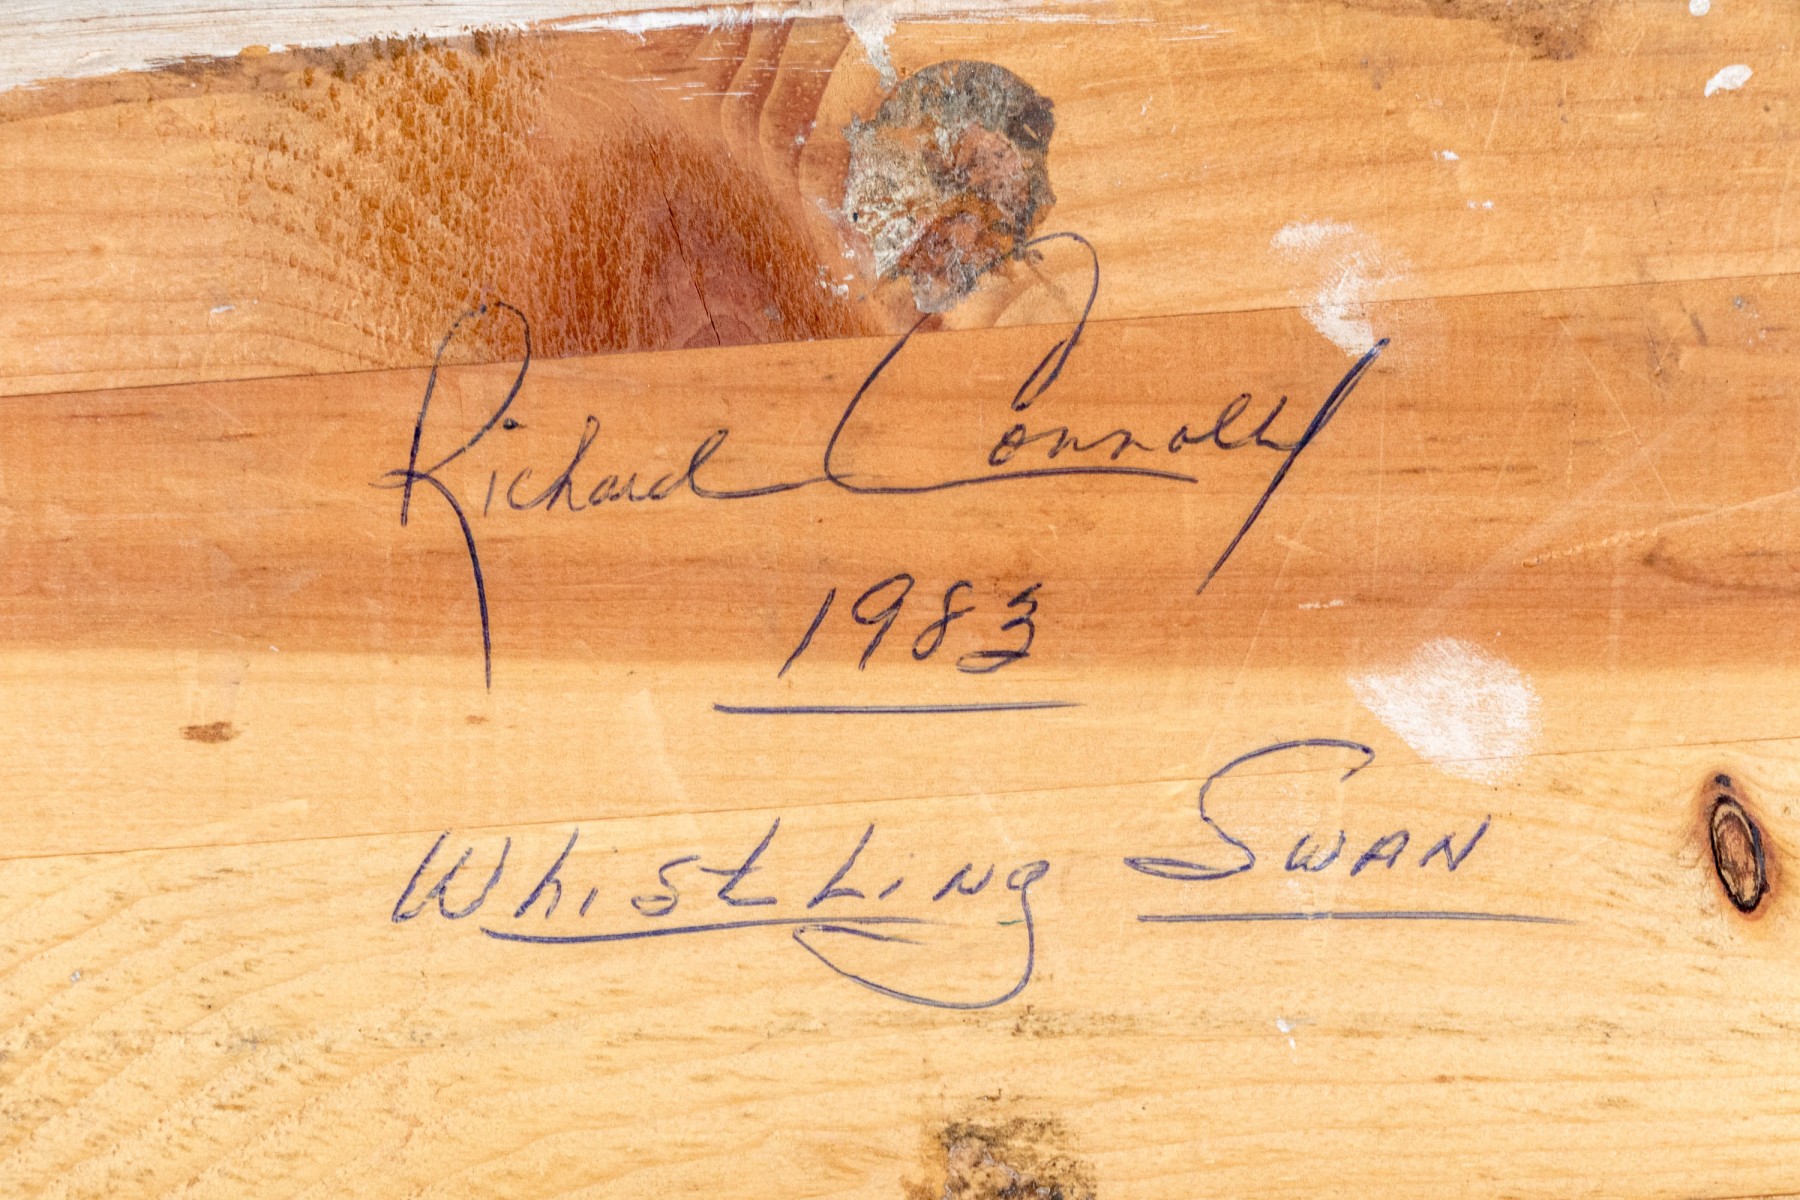 Richard Connolly
1983
Whistling Swan